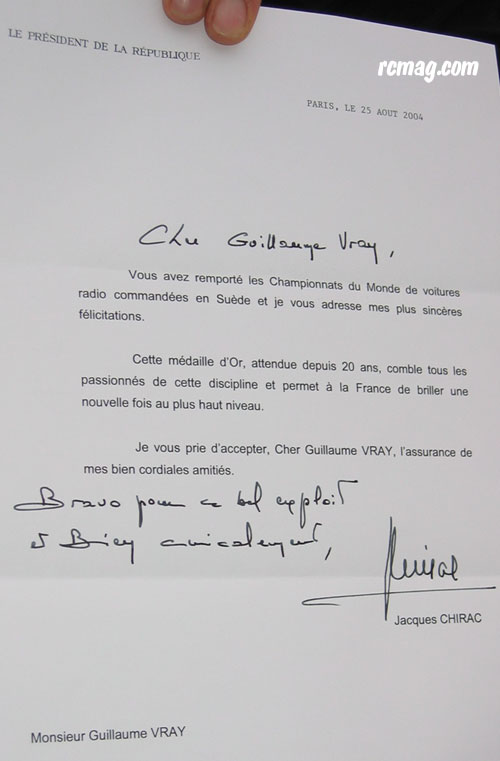 LE PRÉSIDENT DE LA RÉPUBLIQUE
rcmag.com
PARIS, LE 25 AOUT 2004
Cher Guillaume Vray,
Vous avez remporté les Championnats du Monde de voitures
radio commandées en Suède et je vous adresse mes plus sincères
félicitations.
Cette médaille d'Or, attendue depuis 20 ans, comble tous les
passionnés de cette discipline et permet à la France de briller une
nouvelle fois au plus haut niveau.
Je vous prie d'accepter, Cher Guillaume VRAY, l'assurance de
mes bien cordiales amitiés.
Bravo pour ce bel exploit
et Bien amicalement,
Chirac
Jacques CHIRAC
Monsieur Guillaume VRAY